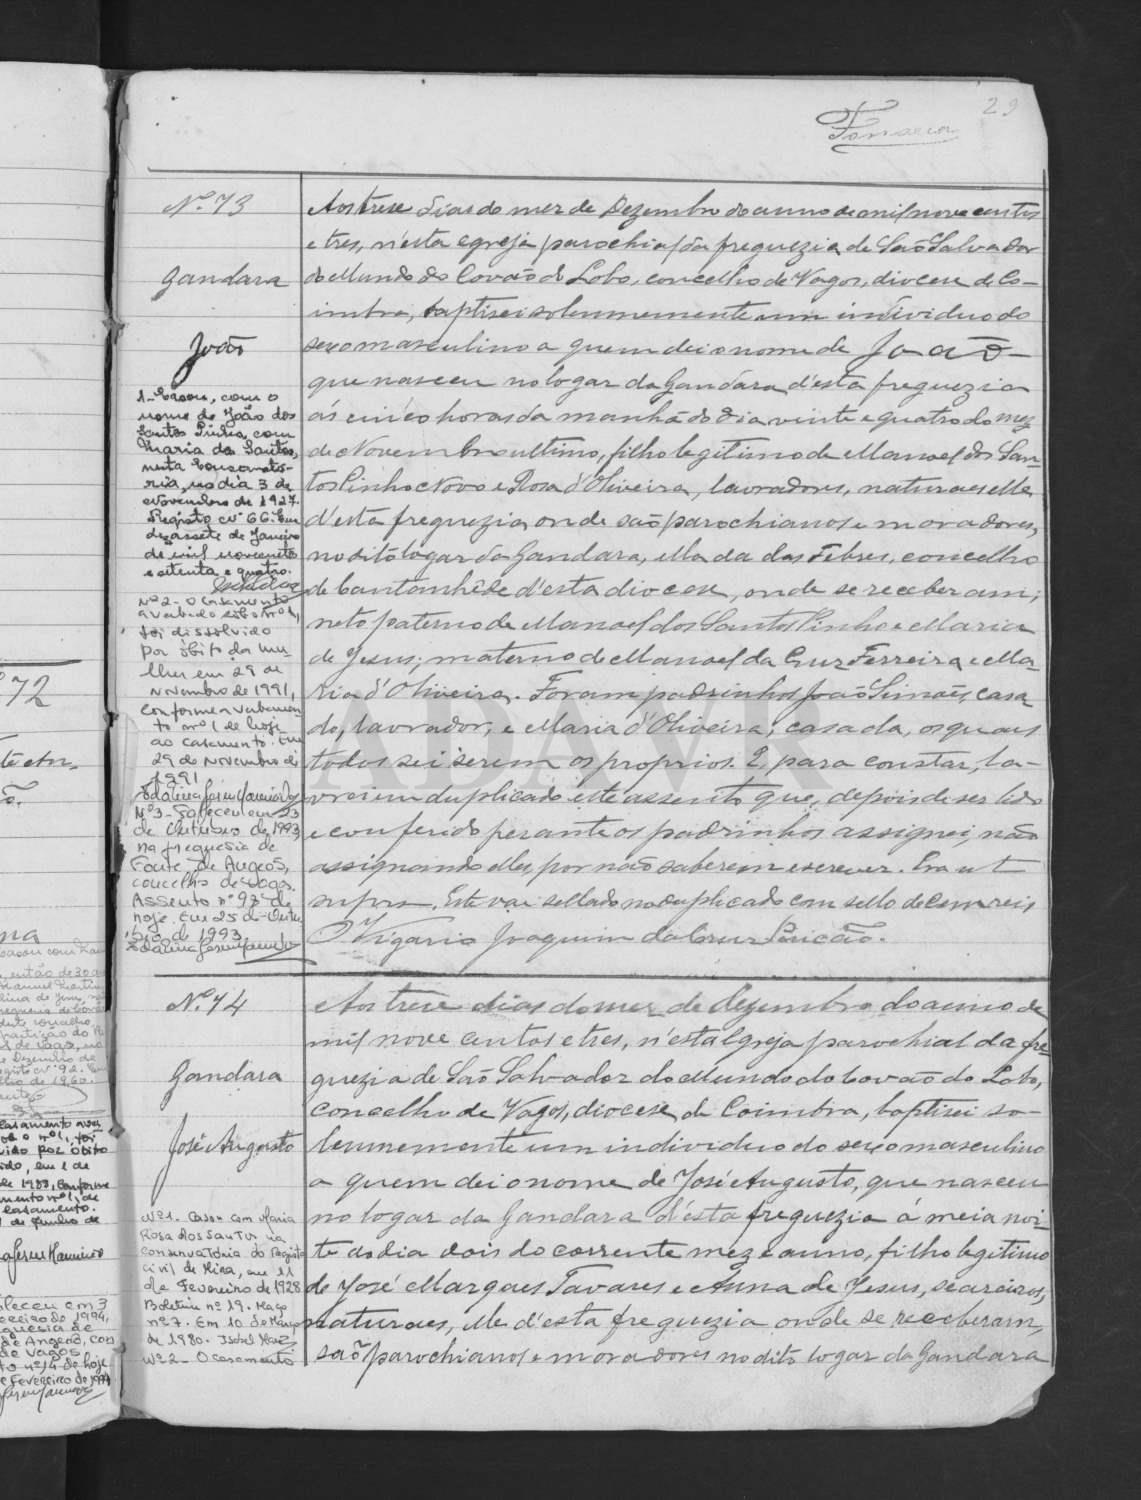 29
Fonseca
Nº 73
Gandara
João
1-Casou, com o
nome de João dos
Santos Pinho, com
Maria dos Santos,
nesta Conservató-
ria, no dia 3 de
Novembro de 1927.
Registo nº 66. Em
dezassete de Janeiro
de mil novecentos
e setenta e quatro.
Nº 2 - O casamento
averbado sob o nº 1,
foi dissolvido
por óbito da mu-
lher em 29 de
Novembro de 1991,
conforme averbamen-
to nº 1 de hoje
ao casamento. Em
29 de Novembro de
1991
Nº 3 - Faleceu em 23
de Outubro de 1993,
na freguesia de
Fonte de Angeão,
concelho de Vagos.
Assento nº 98 de
hoje. Em 25 de Outu-
bro de 1993
Aos trese dias do mez de Dezembro do anno de mil nove centos
e tres, n'esta egreja parochial da freguezia de São Salvador
do Mundo do Covão do Lobo, concelho de Vagos, diocese de Co-
imbra, baptisei solemnemente um individuo do
sexo masculino a quem dei o nome de João
que nasceu no logar da Gandara d'esta freguezia
ás cinco horas da manhã do dia vinte e quatro do mez
de Novembro ultimo, filho legitimo de Manoel dos San-
tos Pinho Novo e Rosa d'Oliveira, lavradores, naturaes elle
d'esta freguezia onde são parochianos e moradores,
no dito logar da Gandara, ella da das Febres, concelho
de Cantanhêde d'esta diocese, onde se receberam;
neto paterno de Manoel dos Santos Pinho e Maria
de Jesus; materno de Manoel da Cruz Ferreira e Ma-
ria d'Oliveira. Foram padrinhos João Simões, casa-
do, lavrador, e Maria d'Oliveira, casada, os quaes
todos sei serem os proprios. E, para constar, la-
vrei em duplicado este assento que, depois de ser lido
e conferido perante os padrinhos assignei, não
assignando elles, por não saberem escrever. Era ut
supra. Este vai sellado no duplicado com sello de cem reis
O Vigario Joaquim da Cruz
Nº 74
Gandara
José Augusto
Nº 1. Casou com Maria
Rosa dos Santos na
Conservatória do Registo
Civil de Mira, em 11
de Fevereiro de 1928
Boletim nº 19. Maço
nº 7. Em 10 de Março
de 1980.
Nº 2 - O casamento
Aos trese dias do mez de Dezembro do anno de
mil nove centos e tres, n'esta Egreja parochial da fre-
guezia de São Salvador do Mundo do Covão do Lobo,
concelho de Vagos, diocese de Coimbra, baptisei so-
lemnemente um individuo do sexo masculino
a quem dei o nome de José Augusto, que nasceu
no logar da Gandara d'esta freguezia á meia noi-
te do dia dois do corrente mez e anno, filho legitimo
de José Marques Tavares e Anna de Jesus, seareiros,
naturaes, elle d'esta freguezia onde se receberam,
são parochianos e moradores no dito logar da Gandara
ADAVR